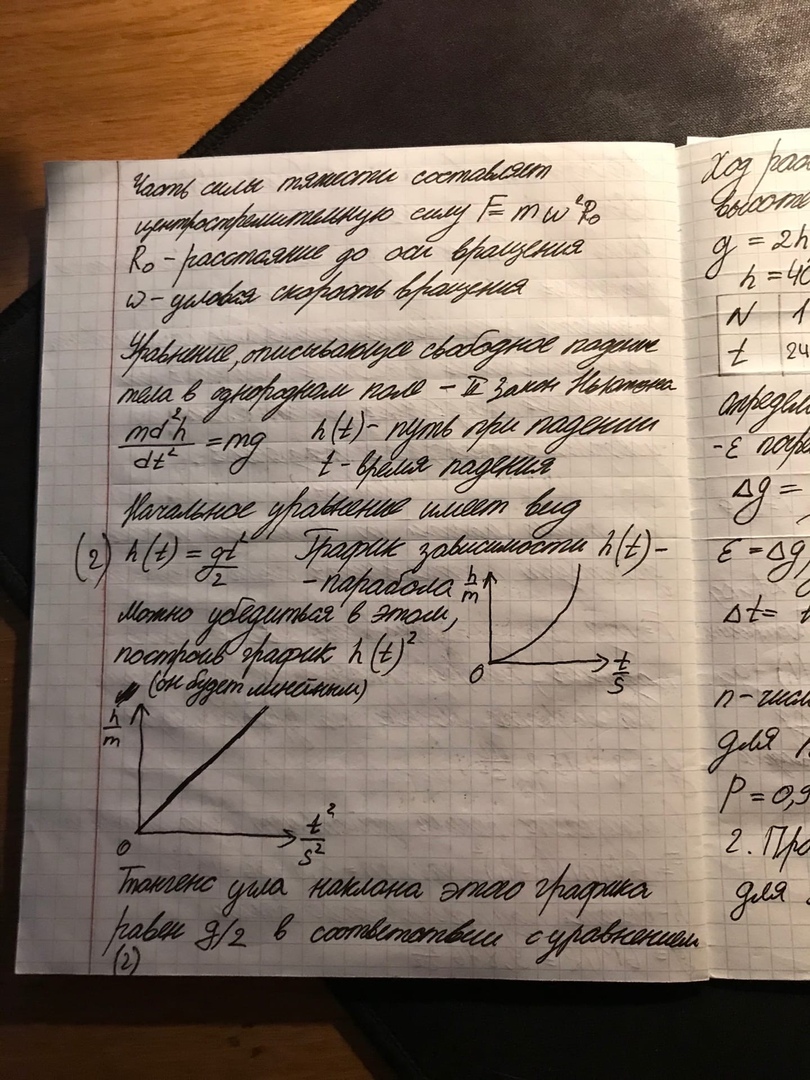 Часть силы тяжести составляет
центростремительную силу F = mω²R₀
R₀ - расстояние до оси вращения
ω - угловая скорость вращения
Уравнение, описывающее свободное падение
тела в однородном поле - II закон Ньютона
md²h/dt² = mg h(t) - путь при падении
t - время падения
Начальное уравнение имеет вид
(2) h(t) = gt²/2 График зависимости h(t) -
- парабола
можно убедиться в этом,
построив график h(t)²
(он будет линейным)
h/m
0
t/s
h/m
0
t²/s²
Тангенс угла наклона этого графика
равен g/2 в соответствии с уравнением
(2)
Ход
g = 2h
h = 40
N 1
t 24
Δg =
ε = Δg
Δt =
n -
для
P = 0,9
2.
для